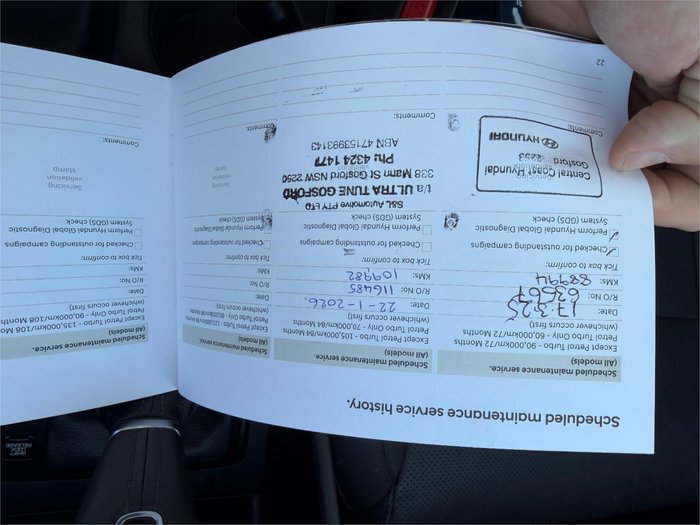 Scheduled maintenance service history.
Scheduled maintenance service.
(All models)
Except Petrol Turbo - 90,000km/72 Months
Petrol Turbo Only - 60,000km/72 Months
(whichever occurs first)
Date: 17-3-25
R/O No: 63567
KMs: 88994
Tick box to confirm:
Checked for outstanding campaigns
Perform Hyundai Global Diagnostic
System (GDS) check
Central Coast Hyundai
Gosford
2253
HYUNDAI
Comments:
22
Scheduled maintenance service.
(All models)
Except Petrol Turbo - 105,000km/84 Months
Petrol Turbo Only - 70,000km/84 Months
(whichever occurs first)
Date: 22-1-2026.
R/O No: 116485
KMs: 109982
Tick box to confirm:
Checked for outstanding campaigns
Perform Hyundai Global Diagnostic
System (GDS) check
S&L Automotive PTY LTD
t/a ULTRA TUNE GOSFORD
338 Mann St Gosford NSW 2250
Ph: 4324 1477
ABN 47153993143
Comments:
Scheduled maintenance service.
(All models)
Except Petrol Turbo - 120,000km/
(whichever occurs first)
Date:
R/O No:
KMs:
Tick box to confirm:
Checked for outstanding campaigns
Perform Hyundai Global Diagnostic
System (GDS) check
Servicing
validation
stamp
Comments:
Scheduled maintenance service.
(All models)
Except Petrol Turbo - 135,000km/108 Months
Petrol Turbo Only - 90,000km/108 Months
(whichever occurs first)
Date:
R/O No:
KMs:
Tick box to confirm:
Checked for outstanding campaigns
Perform Hyundai Global Diagnostic
System (GDS) check
Servicing
validation
stamp
Comments:
SHIFT
LOCK
RELEASE